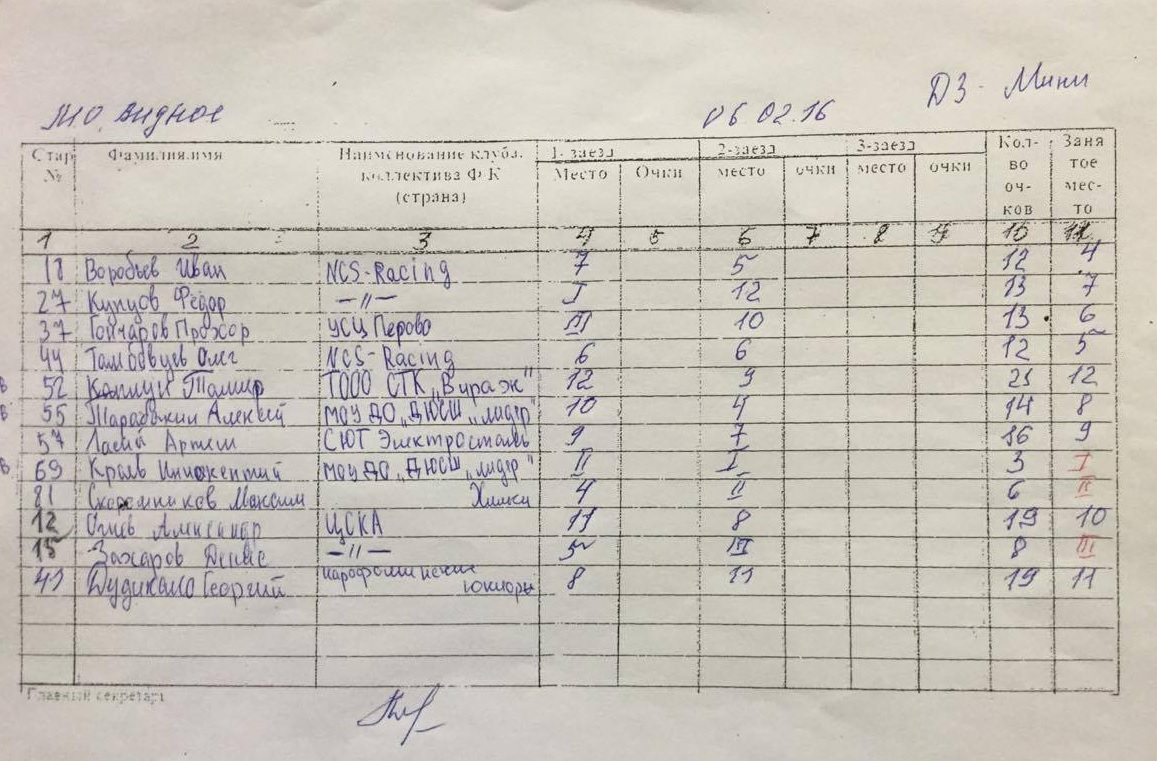 МО Видное 06.02.16 Д3 - Мини
Стар № Фамилия,имя Наименование клуба, коллектива ФК (страна) 1-заезд Место Очки 2-заезд место очки 3-заезд место очки Кол-во оч-ков Заня тое мес-то
1 2 3 4 5 6 7 8 9 10 11
18 Воробьев Иван NCS-Racing 7 5 12 4
27 Купцов Фёдор —//— I 12 13 7
37 Гончаров Прохор УСЦ Перово III 10 13 6
44 Тамбовцев Олег NCS-Racing 6 6 12 5
в 52 Тамир ТООО СТК „Вираж" 12 9 21 12
в 55 Алексей МОУ ДО „ДЮСШ „Лидер" 10 4 14 8
57 Артём СЮТ Электросталь 9 7 16 9
в 69 Кроль Иннокентий МОУ ДО „ДЮСШ „Лидер" II I 3 I
81 Скоромников Максим Химки 4 II 6 II
12 Огнев Александр ЦСКА 11 8 19 10
15 Захаров Денис —//— 5 III 8 III
41 Георгий нарофоминские юниоры 8 11 19 11
Главный секретарь